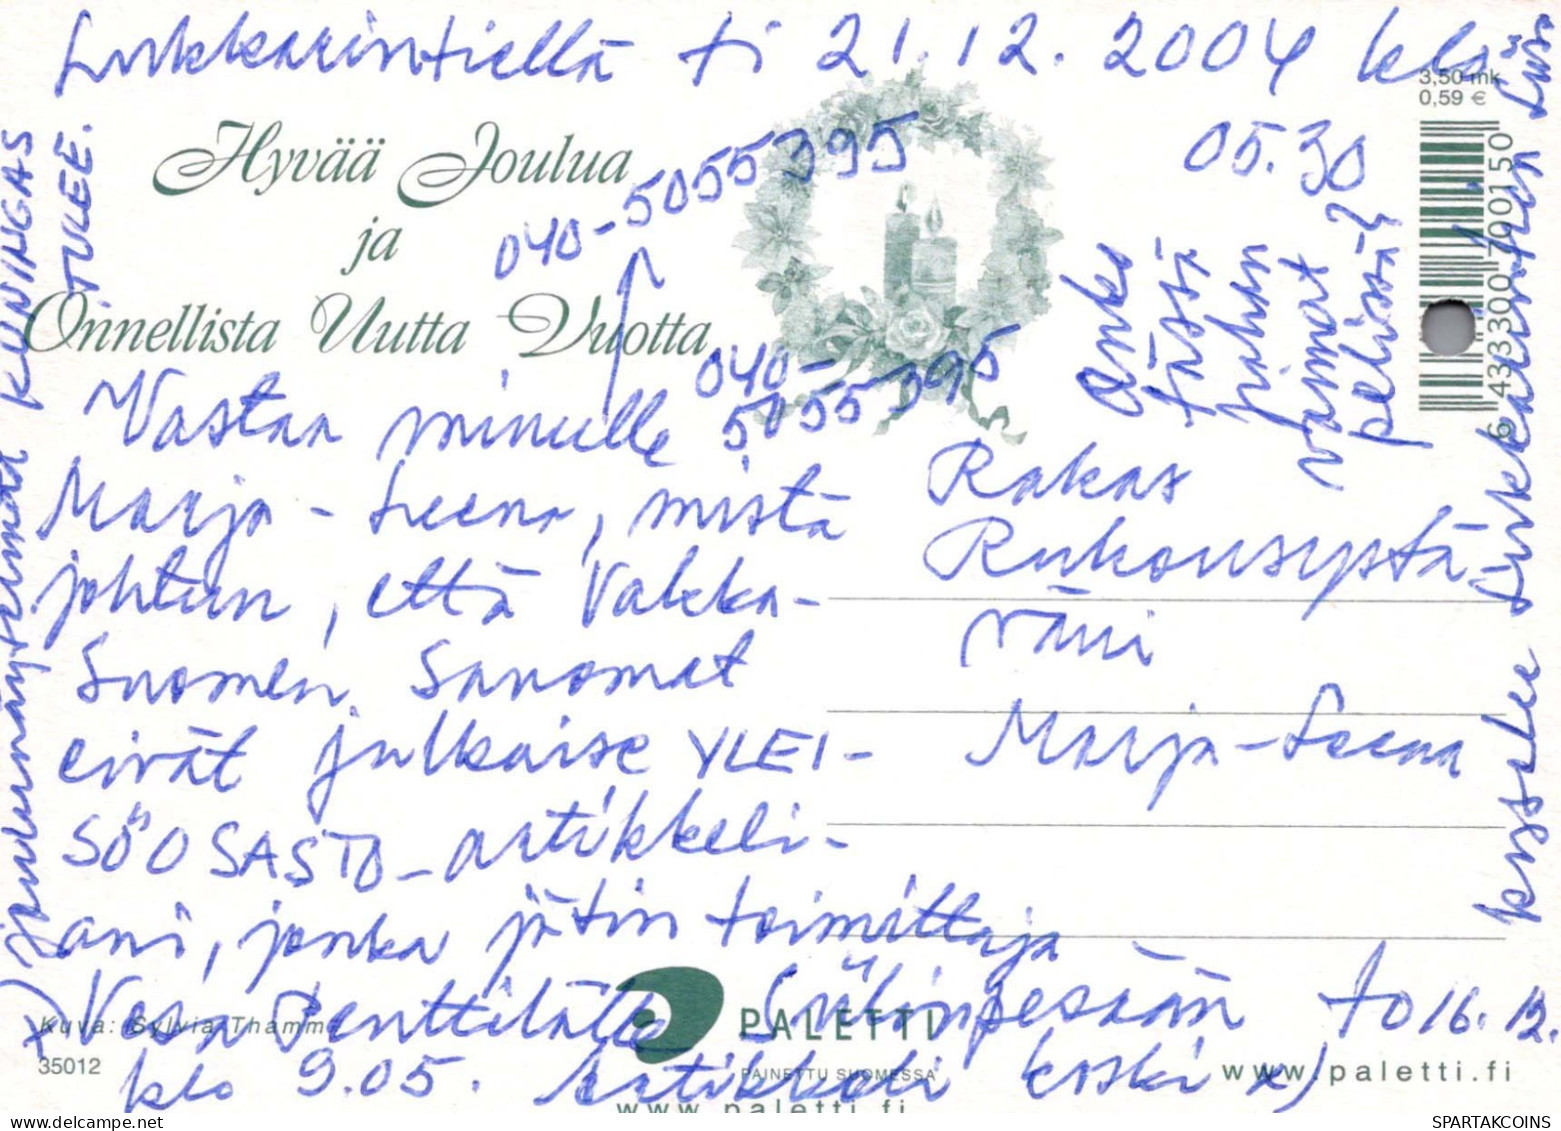 Lukkarintiellä ti 21.12.2004 klo
05.30
3,50 mk
0,59 €
Hyvää Joulua
ja
Onnellista Uutta Vuotta
040-5055395
040-
5055395
Onko
tässä
pahan
voimat
pelissä?
6 433300 700150
Vastaa minulle
Marja-Leena, mistä
johtuu, että Vakka-
Suomen Sanomat
eivät julkaise YLEI-
SÖOSASTO-artikkeli-
ani, jonka jätin toimittaja
Vesa Penttilälle to 16.12.
klo 9.05. Artikkeli koski x)
Rakas
Rukousystä
väni
Marja-Leena
x) joulunäytelmää KUNINGAS
TULEE.
Kuva: Sylvia Thamm
35012
PALETTI
PAINETTU SUOMESSA
www.paletti.fi
www.paletti.fi
SPARTAKCOINS